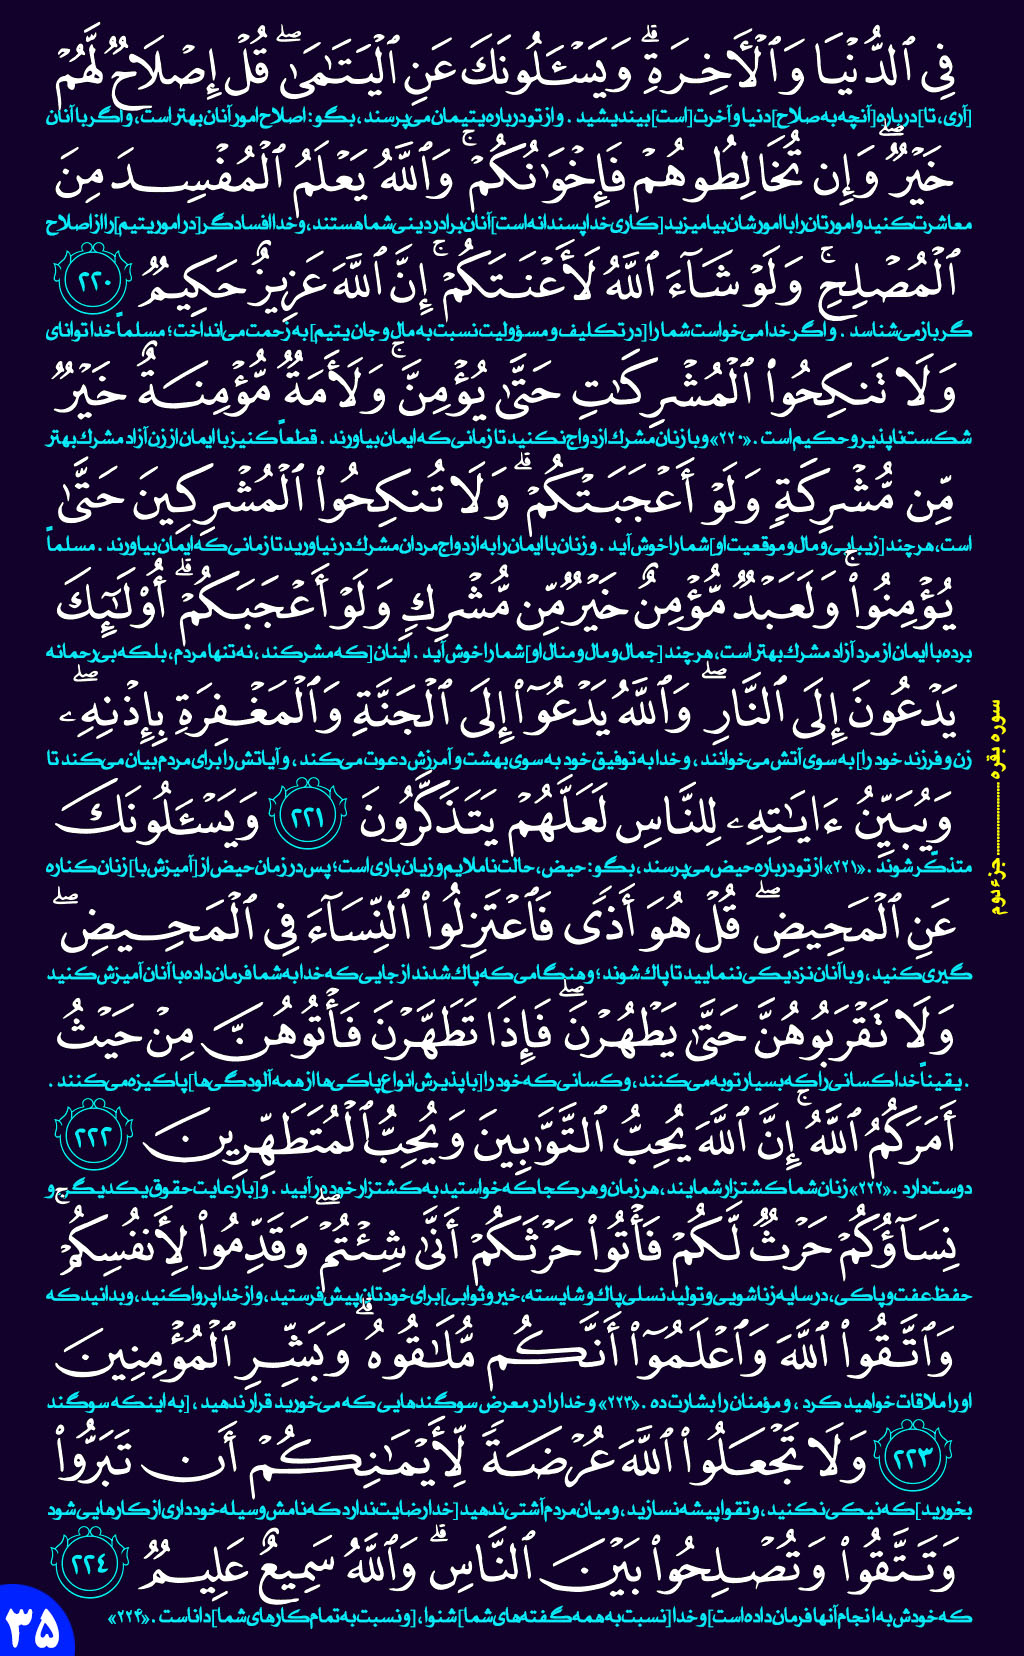 فِي ٱلدُّنۡيَا وَٱلۡأٓخِرَةِۗ وَيَسۡـَٔلُونَكَ عَنِ ٱلۡيَتَٰمَىٰۖ قُلۡ إِصۡلَاحٞ لَّهُمۡ
[آری، تا] درباره [آنچه به صلاح] دنیا و آخرت [است] بیندیشید . و از تو درباره یتیمان می‌پرسند ، بگو : اصلاح امور آنان بهتر است، و اگر با آنان
خَيۡرٞۖ وَإِن تُخَالِطُوهُمۡ فَإِخۡوَٰنُكُمۡۚ وَٱللَّهُ يَعۡلَمُ ٱلۡمُفۡسِدَ مِنَ
معاشرت کنید و امورتان را با امورشان بیامیزید [کاری خداپسندانه است] آنان برادر دینی شما هستند ، و خدا افسادگر [در امور یتیم] را از اصلاح
ٱلۡمُصۡلِحِۚ وَلَوۡ شَآءَ ٱللَّهُ لَأَعۡنَتَكُمۡۚ إِنَّ ٱللَّهَ عَزِيزٌ حَكِيمٞ ٢٢٠
گر باز می شناسد . و اگر خدا می خواست شما را [در تکلیف و مسؤولیت نسبت به مال و جان یتیم] به زحمت می‌انداخت ؛ مسلماً خدا توانای
وَلَا تَنكِحُواْ ٱلۡمُشۡرِكَٰتِ حَتَّىٰ يُؤۡمِنَّۚ وَلَأَمَةٞ مُّؤۡمِنَةٌ خَيۡرٞ
شکست ناپذیر و حکیم است . «۲۲۰» و با زنان مشرک ازدواج نکنید تا زمانی که ایمان بیاورند . قطعاً کنیز با ایمان از زن آزاد مشرک بهتر
مِّن مُّشۡرِكَةٖ وَلَوۡ أَعۡجَبَتۡكُمۡۗ وَلَا تُنكِحُواْ ٱلۡمُشۡرِكِينَ حَتَّىٰ
است، هر چند [زیبایی و مال و موقعیت او] شما را خوش آید . و زنان با ایمان را به ازدواج مردان مشرک در نیاورید تا زمانی که ایمان بیاورند . مسلماً
يُؤۡمِنُواْۚ وَلَعَبۡدٞ مُّؤۡمِنٌ خَيۡرٞ مِّن مُّشۡرِكٖ وَلَوۡ أَعۡجَبَكُمۡۗ أُوْلَٰٓئِكَ
برده با ایمان از مرد آزاد مشرک بهتر است، هر چند [جمال و مال و منال او] شما را خوش آید . اینان [که مشرکند ، نه تنها مردم، بلکه بی‌رحمانه
يَدۡعُونَ إِلَى ٱلنَّارِۖ وَٱللَّهُ يَدۡعُوٓاْ إِلَى ٱلۡجَنَّةِ وَٱلۡمَغۡفِرَةِ بِإِذۡنِهِۦۖ
زن و فرزند خود را] به سوی آتش می‌خوانند ، و خدا به توفیق خود به سوی بهشت و آمرزش دعوت می‌کند ، و آیاتش را برای مردم بیان می‌کند تا
وَيُبَيِّنُ ءَايَٰتِهِۦ لِلنَّاسِ لَعَلَّهُمۡ يَتَذَكَّرُونَ ٢٢١ وَيَسۡـَٔلُونَكَ
متذکّر شوند . «۲۲۱» از تو درباره حیض می‌پرسند ، بگو : حیض، حالت ناملایم و زیان باری است؛ پس در زمان حیض از [آمیزش با] زنان کناره
عَنِ ٱلۡمَحِيضِۖ قُلۡ هُوَ أَذٗى فَٱعۡتَزِلُواْ ٱلنِّسَآءَ فِي ٱلۡمَحِيضِۖ
گیری کنید ، و با آنان نزدیکی ننمایید تا پاک شوند ؛ و هنگامی که پاک شدند از جایی که خدا به شما فرمان داده با آنان آمیزش کنید
وَلَا تَقۡرَبُوهُنَّ حَتَّىٰ يَطۡهُرۡنَۖ فَإِذَا تَطَهَّرۡنَ فَأۡتُوهُنَّ مِنۡ حَيۡثُ
. یقیناً خدا کسانی را که بسیار توبه می‌کنند ، و کسانی که خود را [با پذیرش انواع پاکی‌ها از همه آلودگی‌ها] پاکیزه می‌کنند .
أَمَرَكُمُ ٱللَّهُۚ إِنَّ ٱللَّهَ يُحِبُّ ٱلتَّوَّٰبِينَ وَيُحِبُّ ٱلۡمُتَطَهِّرِينَ ٢٢٢
دوست دارد . «۲۲۲» زنان شما کشتزار شمایند ، هر زمان و هر کجا که خواستید به کشتزار خود در آیید . و [با رعایت حقوق یکدیگر و
نِسَآؤُكُمۡ حَرۡثٞ لَّكُمۡ فَأۡتُواْ حَرۡثَكُمۡ أَنَّىٰ شِئۡتُمۡۖ وَقَدِّمُواْ لِأَنفُسِكُمۡۚ
حفظ عفت و پاکی، در سایه زناشویی و تولید نسلی پاک و شایسته، خیر و ثوابی] برای خودتان پیش فرستید ، و از خدا پروا کنید ، و بدانید که
وَٱتَّقُواْ ٱللَّهَ وَٱعۡلَمُوٓاْ أَنَّكُم مُّلَٰقُوهُۗ وَبَشِّرِ ٱلۡمُؤۡمِنِينَ
او را ملاقات خواهید کرد ، و مؤمنان را بشارت ده . «۲۲۳» و خدا را در معرض سوگندهایی که می‌خورید قرار ندهید ، [به اینکه سوگند
٢٢٣ وَلَا تَجۡعَلُواْ ٱللَّهَ عُرۡضَةٗ لِّأَيۡمَٰنِكُمۡ أَن تَبَرُّواْ
بخورید] که نیکی نکنید ، و تقوا پیشه نسازید ، و میان مردم آشتی ندهید [خدا رضایت ندارد که نامش وسیله خودداری از کارهایی شود
وَتَتَّقُواْ وَتُصۡلِحُواْ بَيۡنَ ٱلنَّاسِۗ وَٱللَّهُ سَمِيعٌ عَلِيمٞ ٢٢٤
که خودش به ا نجام آنها فرمان داده است] و خدا [نسبت به همه گفته های شما] شنوا ، [و نسبت به تمام کارهای شما] داناست . «۲۲۴»
سوره بقره .................... جزء دوم
۳۵